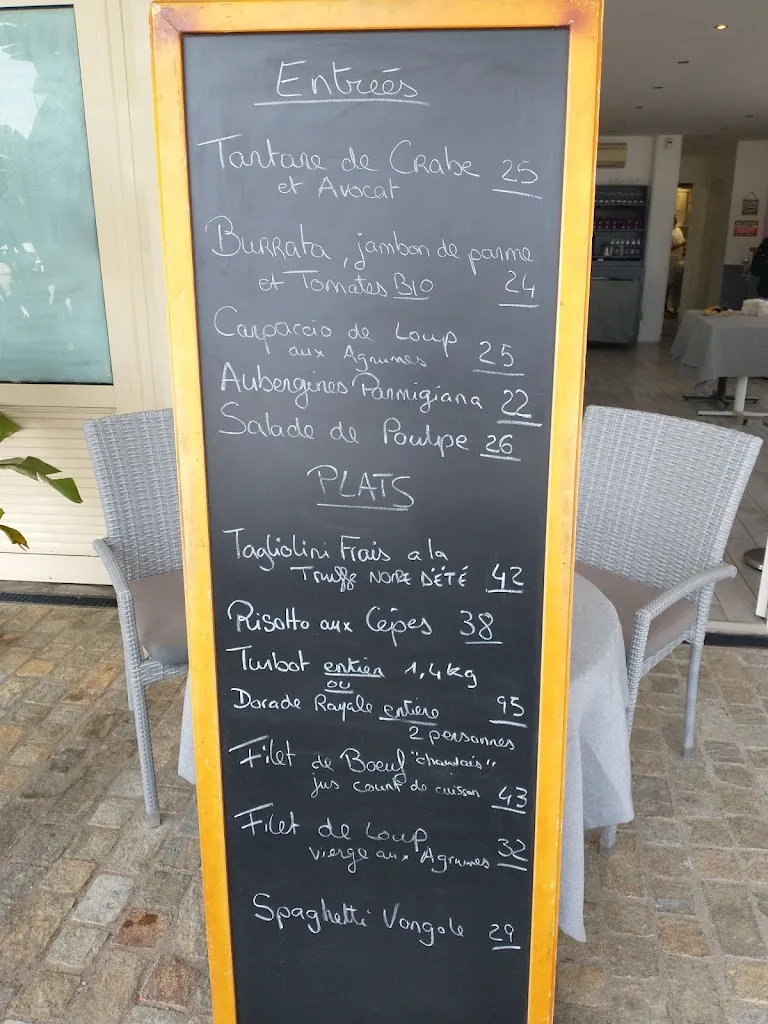 Entrées
Tartare de Crabe 25
et Avocat
Burrata, jambon de parme
et Tomates BIO 24
Carpaccio de Loup
aux Agrumes 25
Aubergines Parmigiana 22
Salade de Poulpe 26
PLATS
Tagliolini Frais a la
Truffe NOIRE D'ÉTÉ 42
Risotto aux Cépes 38
Turbot entier 1,4kg
ou
Dorade Royale entière 95
2 personnes
Filet de Boeuf "charolais"
jus court de cuisson 43
Filet de Loup
vierge aux Agrumes 32
Spaghetti Vongole 29